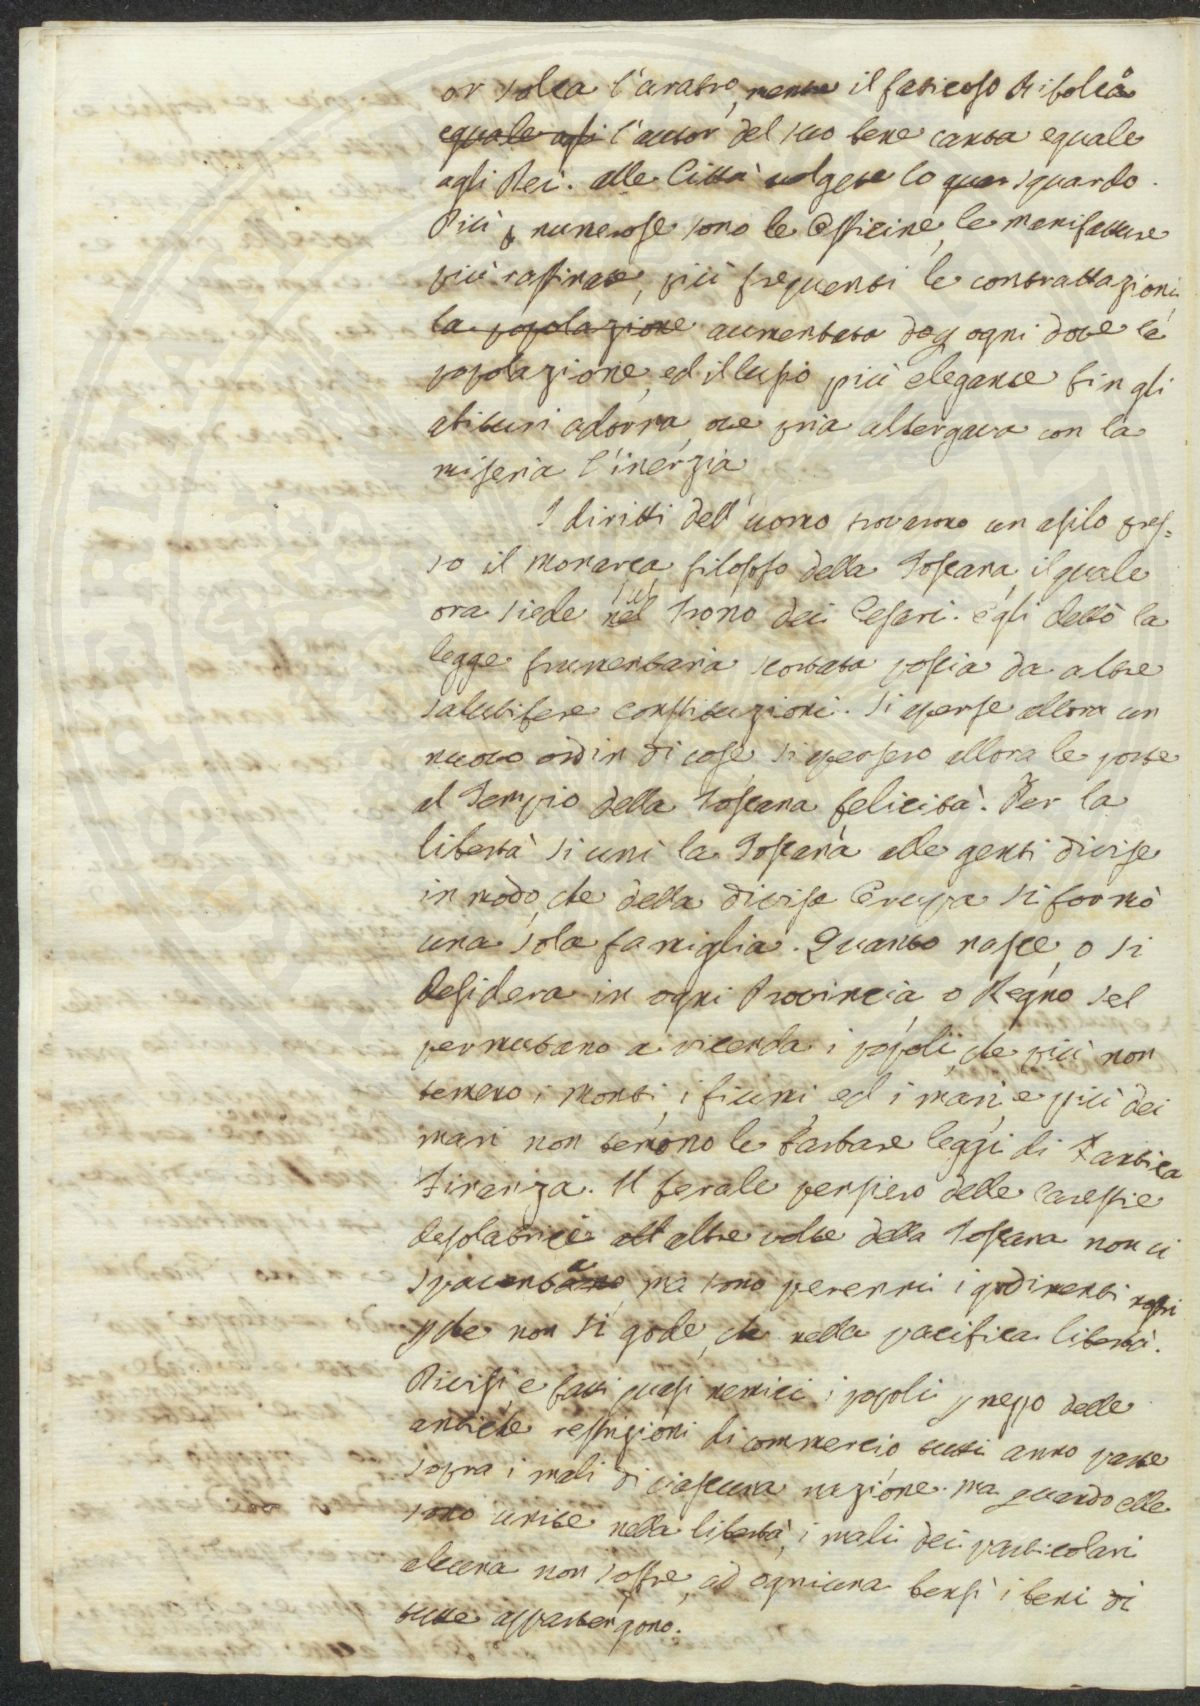 or solca l'aratro, mentre il faticoso Bifolco
eguale agli l'autor del suo bene canta eguale
agli Rei. alle Città volgete lo sguardo.
Più numerose sono le Officine, le manifatture
più raffinate, più frequenti le contrattazioni,
la popolazione aumentata da ogni dove la
popolazione, ed il lusso più elegante fin gli
abituri adorna, ove pria albergava con la
miseria l'inerzia.
I diritti dell'uomo trovarono un asilo pres=
so il Monarca filosofo della Toscana, il quale
ora siede nel sul Trono dei Cesari. Egli dettò la
legge frumentaria scortata poscia da altre
salutifere constituzioni. Si aperse allora un
nuovo ordin di cose, si apersero allora le porte
al Tempio della Toscana felicità. Per la
libertà si unì la Toscana alle genti divise
in modo, che della divisa Europa si formò
una sola famiglia. Quanto nasce, o si
desidera in ogni Provincia, o Regno sel
permutano a vicenda i popoli, che più non
temero i monti, i fiumi, ed i mari, e più dei
mari non temono le barbare leggi di
Tiranza. Il ferale pensiero delle carestie
desolatrici altre volte della Toscana non ci
spaventa, ma sono perenni i godimenti nostri
che non si gode, che nella pacifica libertà.
Divisi, e fatti quasi nemici i popoli p mezzo delle
antiche restrizioni di commercio tutti anno parte
sopra i mali di ciascuna nazione. ma quando elle
sono unite nella libertà, i mali dei particolari
alcuna non soffre, ad ogniuna bensì i beni di
tutte appartengono.